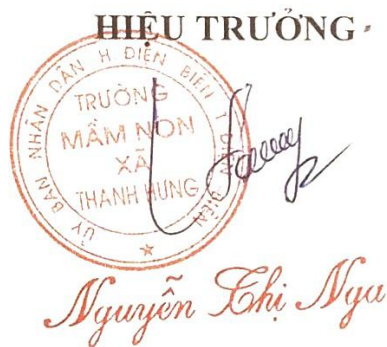 HIỆU TRƯỞNG
ỦY BAN NHÂN DÂN H ĐIỆN BIÊN T ĐIỆN BIÊN
TRƯỜNG
MẦM NON
XÃ
THANH HƯNG
Nguyễn Thị Nga